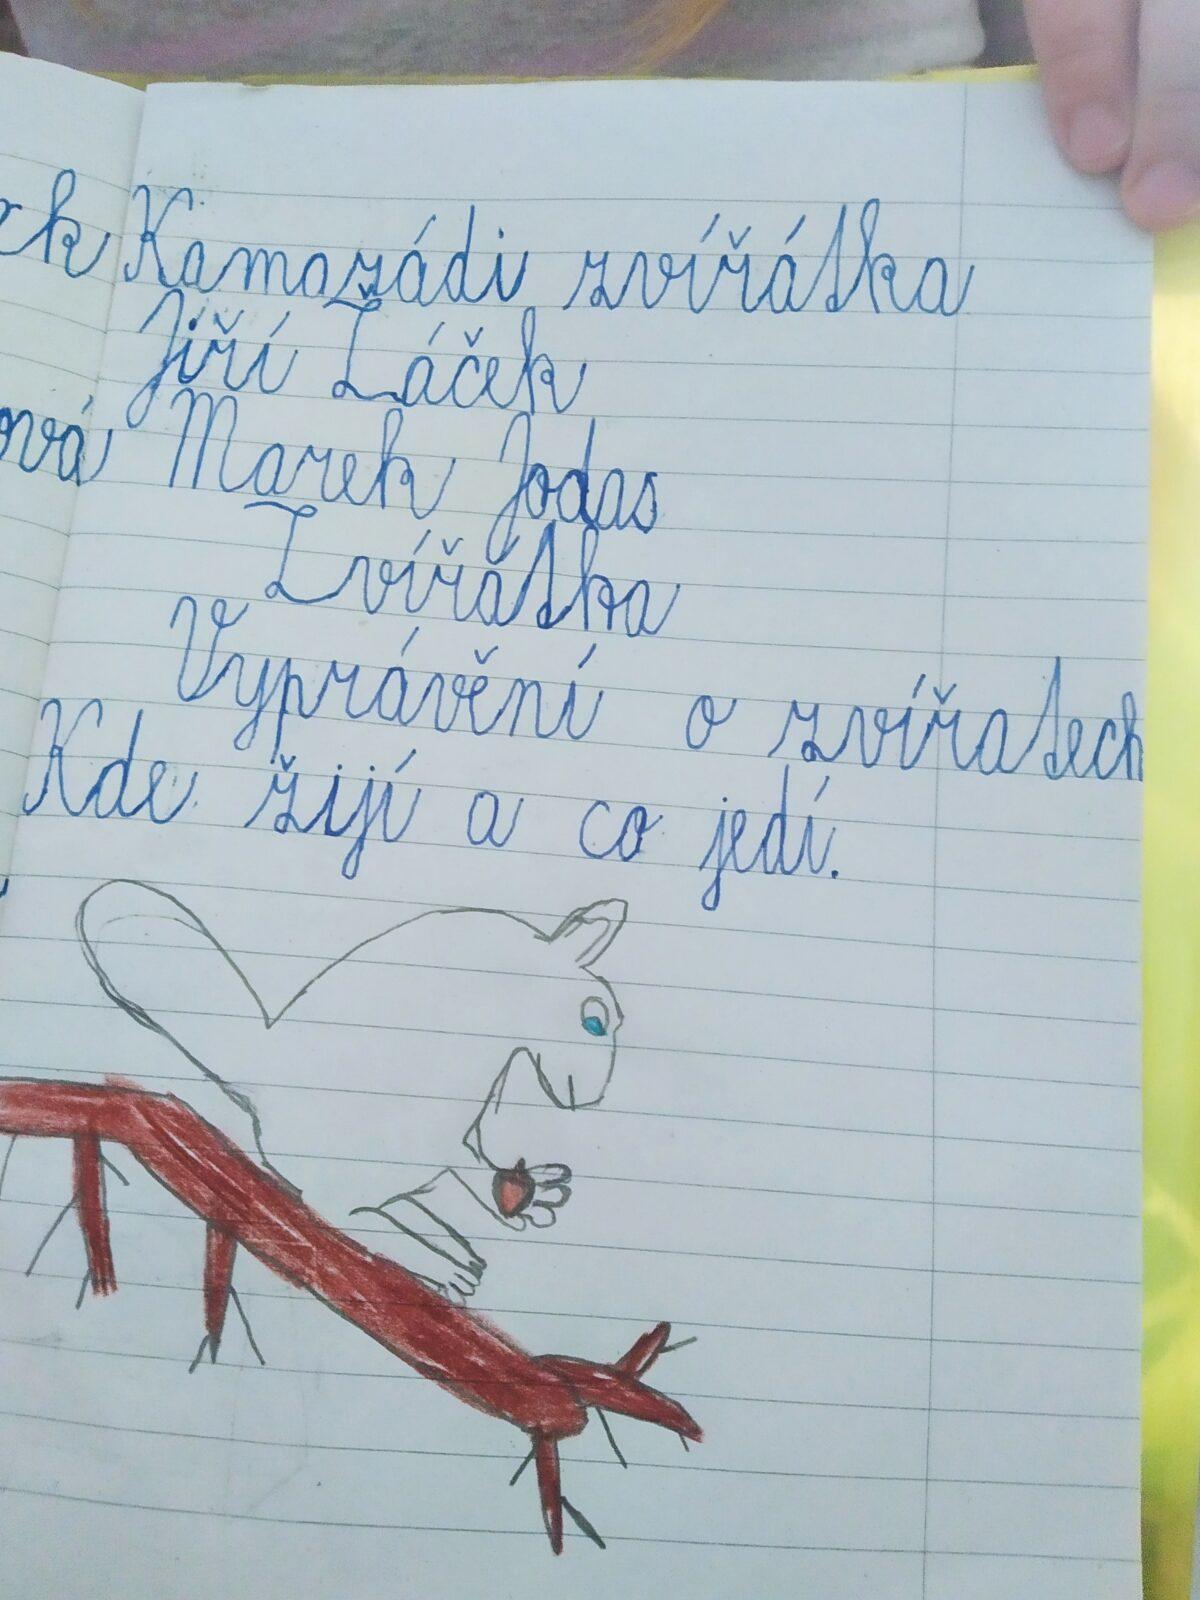 rk
Kamarádi zvířátka
Jiří Žáček
ová
Marek Jodas
Zvířátka
Vyprávění o zvířatech
Kde žijí a co jedí.